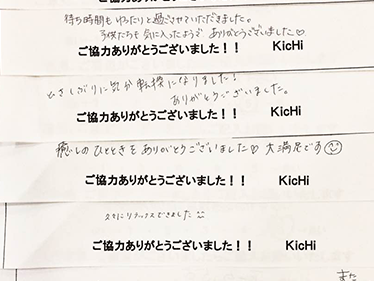 ご協力ありがとうございました！！ KicHi
待ち時間もゆったりと過ごさせていただきました。
子供たちも気に入ったようで ありがとうございました♡
ご協力ありがとうございました！！ KicHi
ひさしぶりに気分転換になりました！
ありがとうございました。
ご協力ありがとうございました！！ KicHi
癒しのひとときをありがとうございました♡ 大満足です☺
ご協力ありがとうございました！！ KicHi
リラックスできました ☺
ご協力ありがとうございました！！ KicHi
また